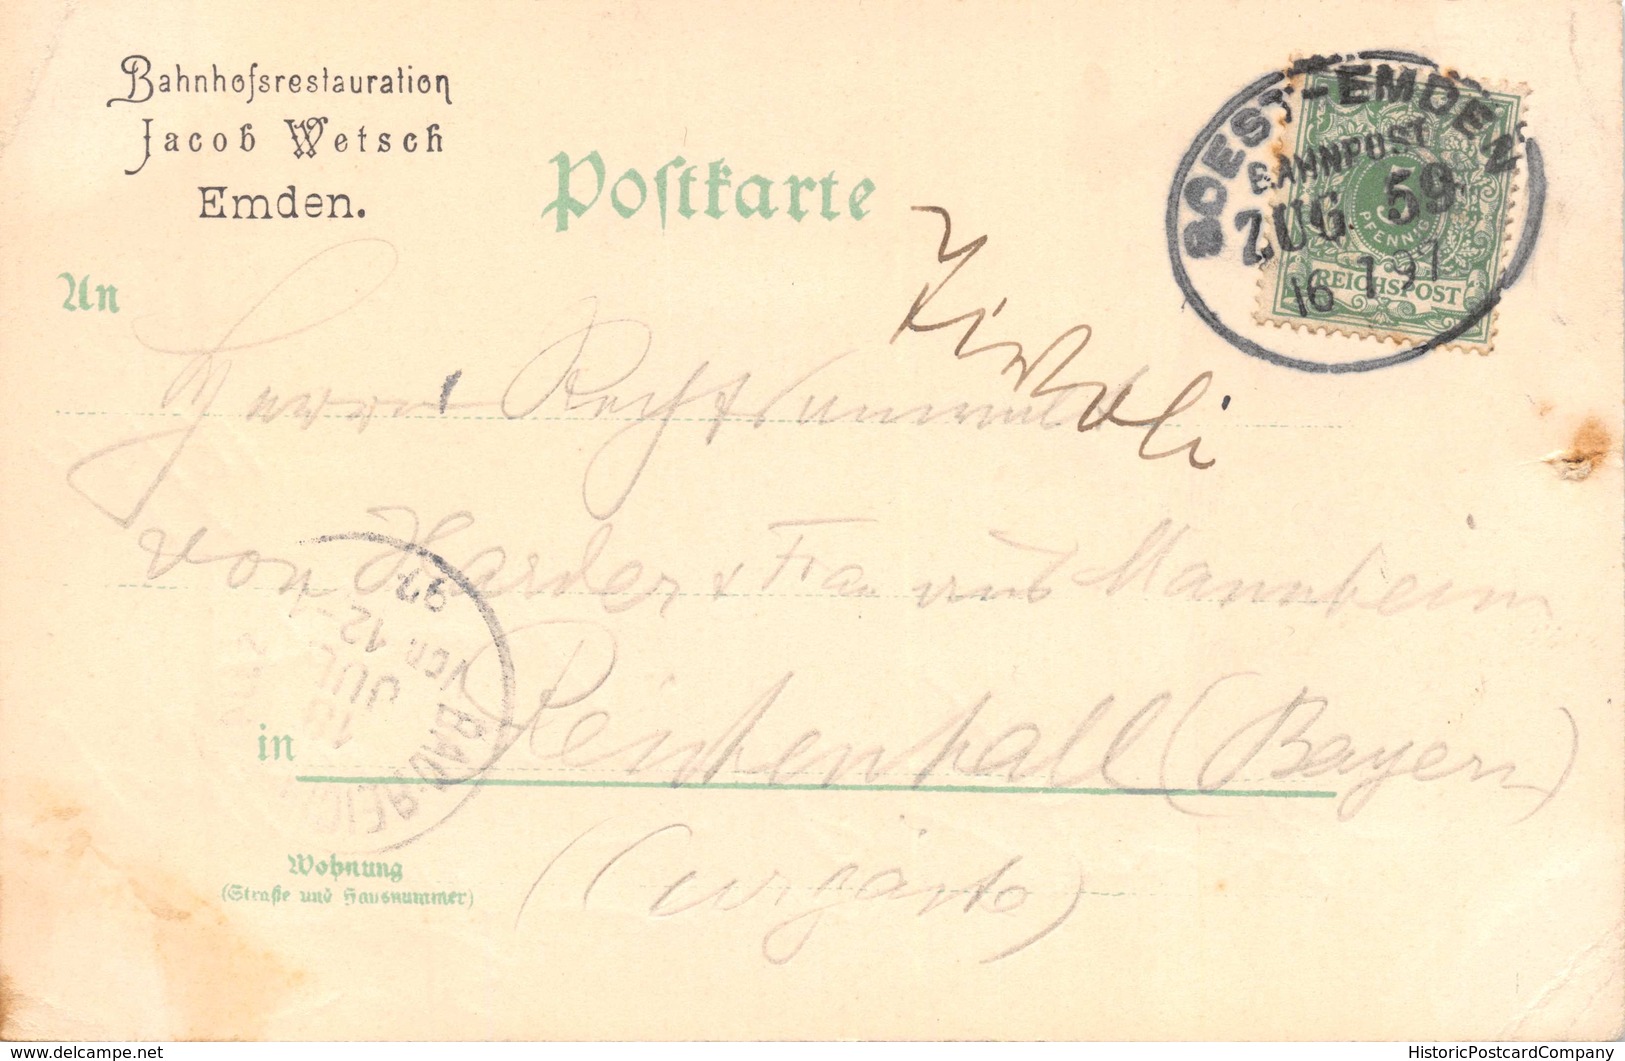 Bahnhofsrestauration
Jacob Wetsch
Emden.
Postkarte
SOEST-EMDEN
BAHNPOST
ZUG 59
16 7 97
5
PFENNIG
REICHSPOST
An
Herrn Rechtsanwalt
von Harder & Fra aus Mannheim
in Reichenhall (Bayern)
(Curgäste)
Wohnung
(Straße und Hausnummer)
BAD-REICH
18
JUL
VOR. 12-
97
delcampe.net
HistoricPostcardCompany